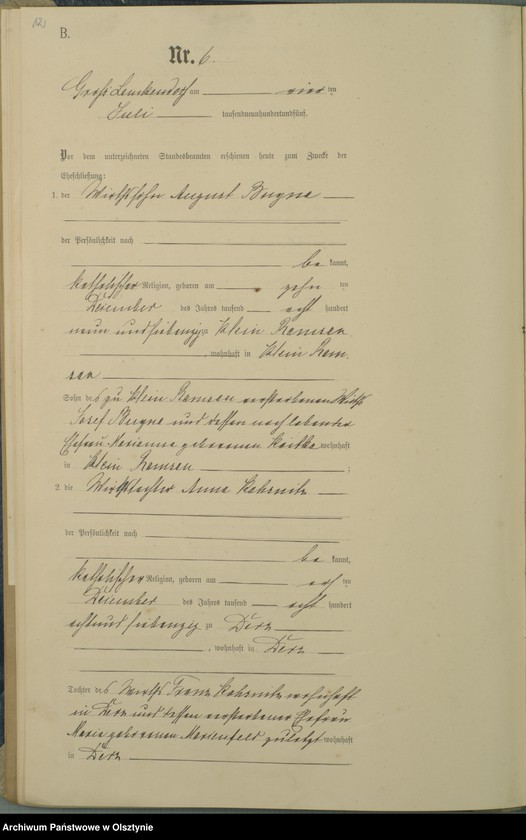 B.
Nr. 6.
Groß Lemkendorf am vier ten
Juli tausendneunhundertundfünf.
Vor dem unterzeichneten Standesbeamten erschienen heute zum Zwecke der
Eheschließung:
1. der Wirthssohn August Bugna
der Persönlichkeit nach
be kannt,
katholischer Religion, geboren am zehn ten
Dezember des Jahres tausend acht hundert
neun und siebenzig zu Klein Ramsau
, wohnhaft in Klein Ram,
sau
Sohn des zu Klein Ramsau verstorbenen Wirths
Josef Bugna und dessen nachlebenden
Ehefrau Marianna geborenen wohnhaft
in Klein Ramsau ;
2. die Wirthstochter Anna
der Persönlichkeit nach
be kannt,
katholischer Religion, geboren am ten
Dezember des Jahres tausend acht hundert
achtund siebenzig zu Derz
, wohnhaft in Derz
Tochter des Wirths Franz wohnhaft
in Derz und dessen verstorbener Ehefrau
Maria geborenen Marienfeld zuletzt wohnhaft
in Derz
Archiwum Państwowe w Olsztynie